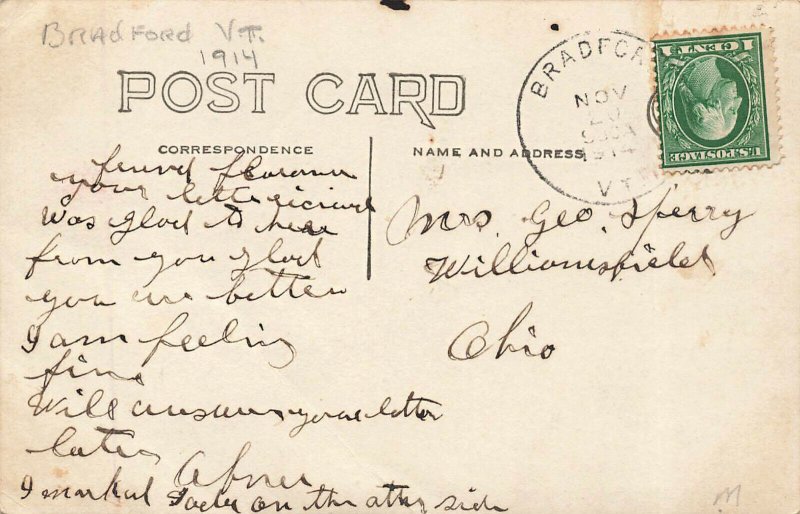 Bradford Vt.
1914
POST CARD
CORRESPONDENCE
NAME AND ADDRESS
BRADFO
NOV
20
1914
VT
1 CENT 1
U.S. POSTAGE
frind Florance
your letter recieved
Was glad to here
from you glad
you are better
I am feeling
fine
Will answer your letter
later
Abner
I markd on the other side
Mrs. Geo. Sperry
Williamsfield
Ohio
M